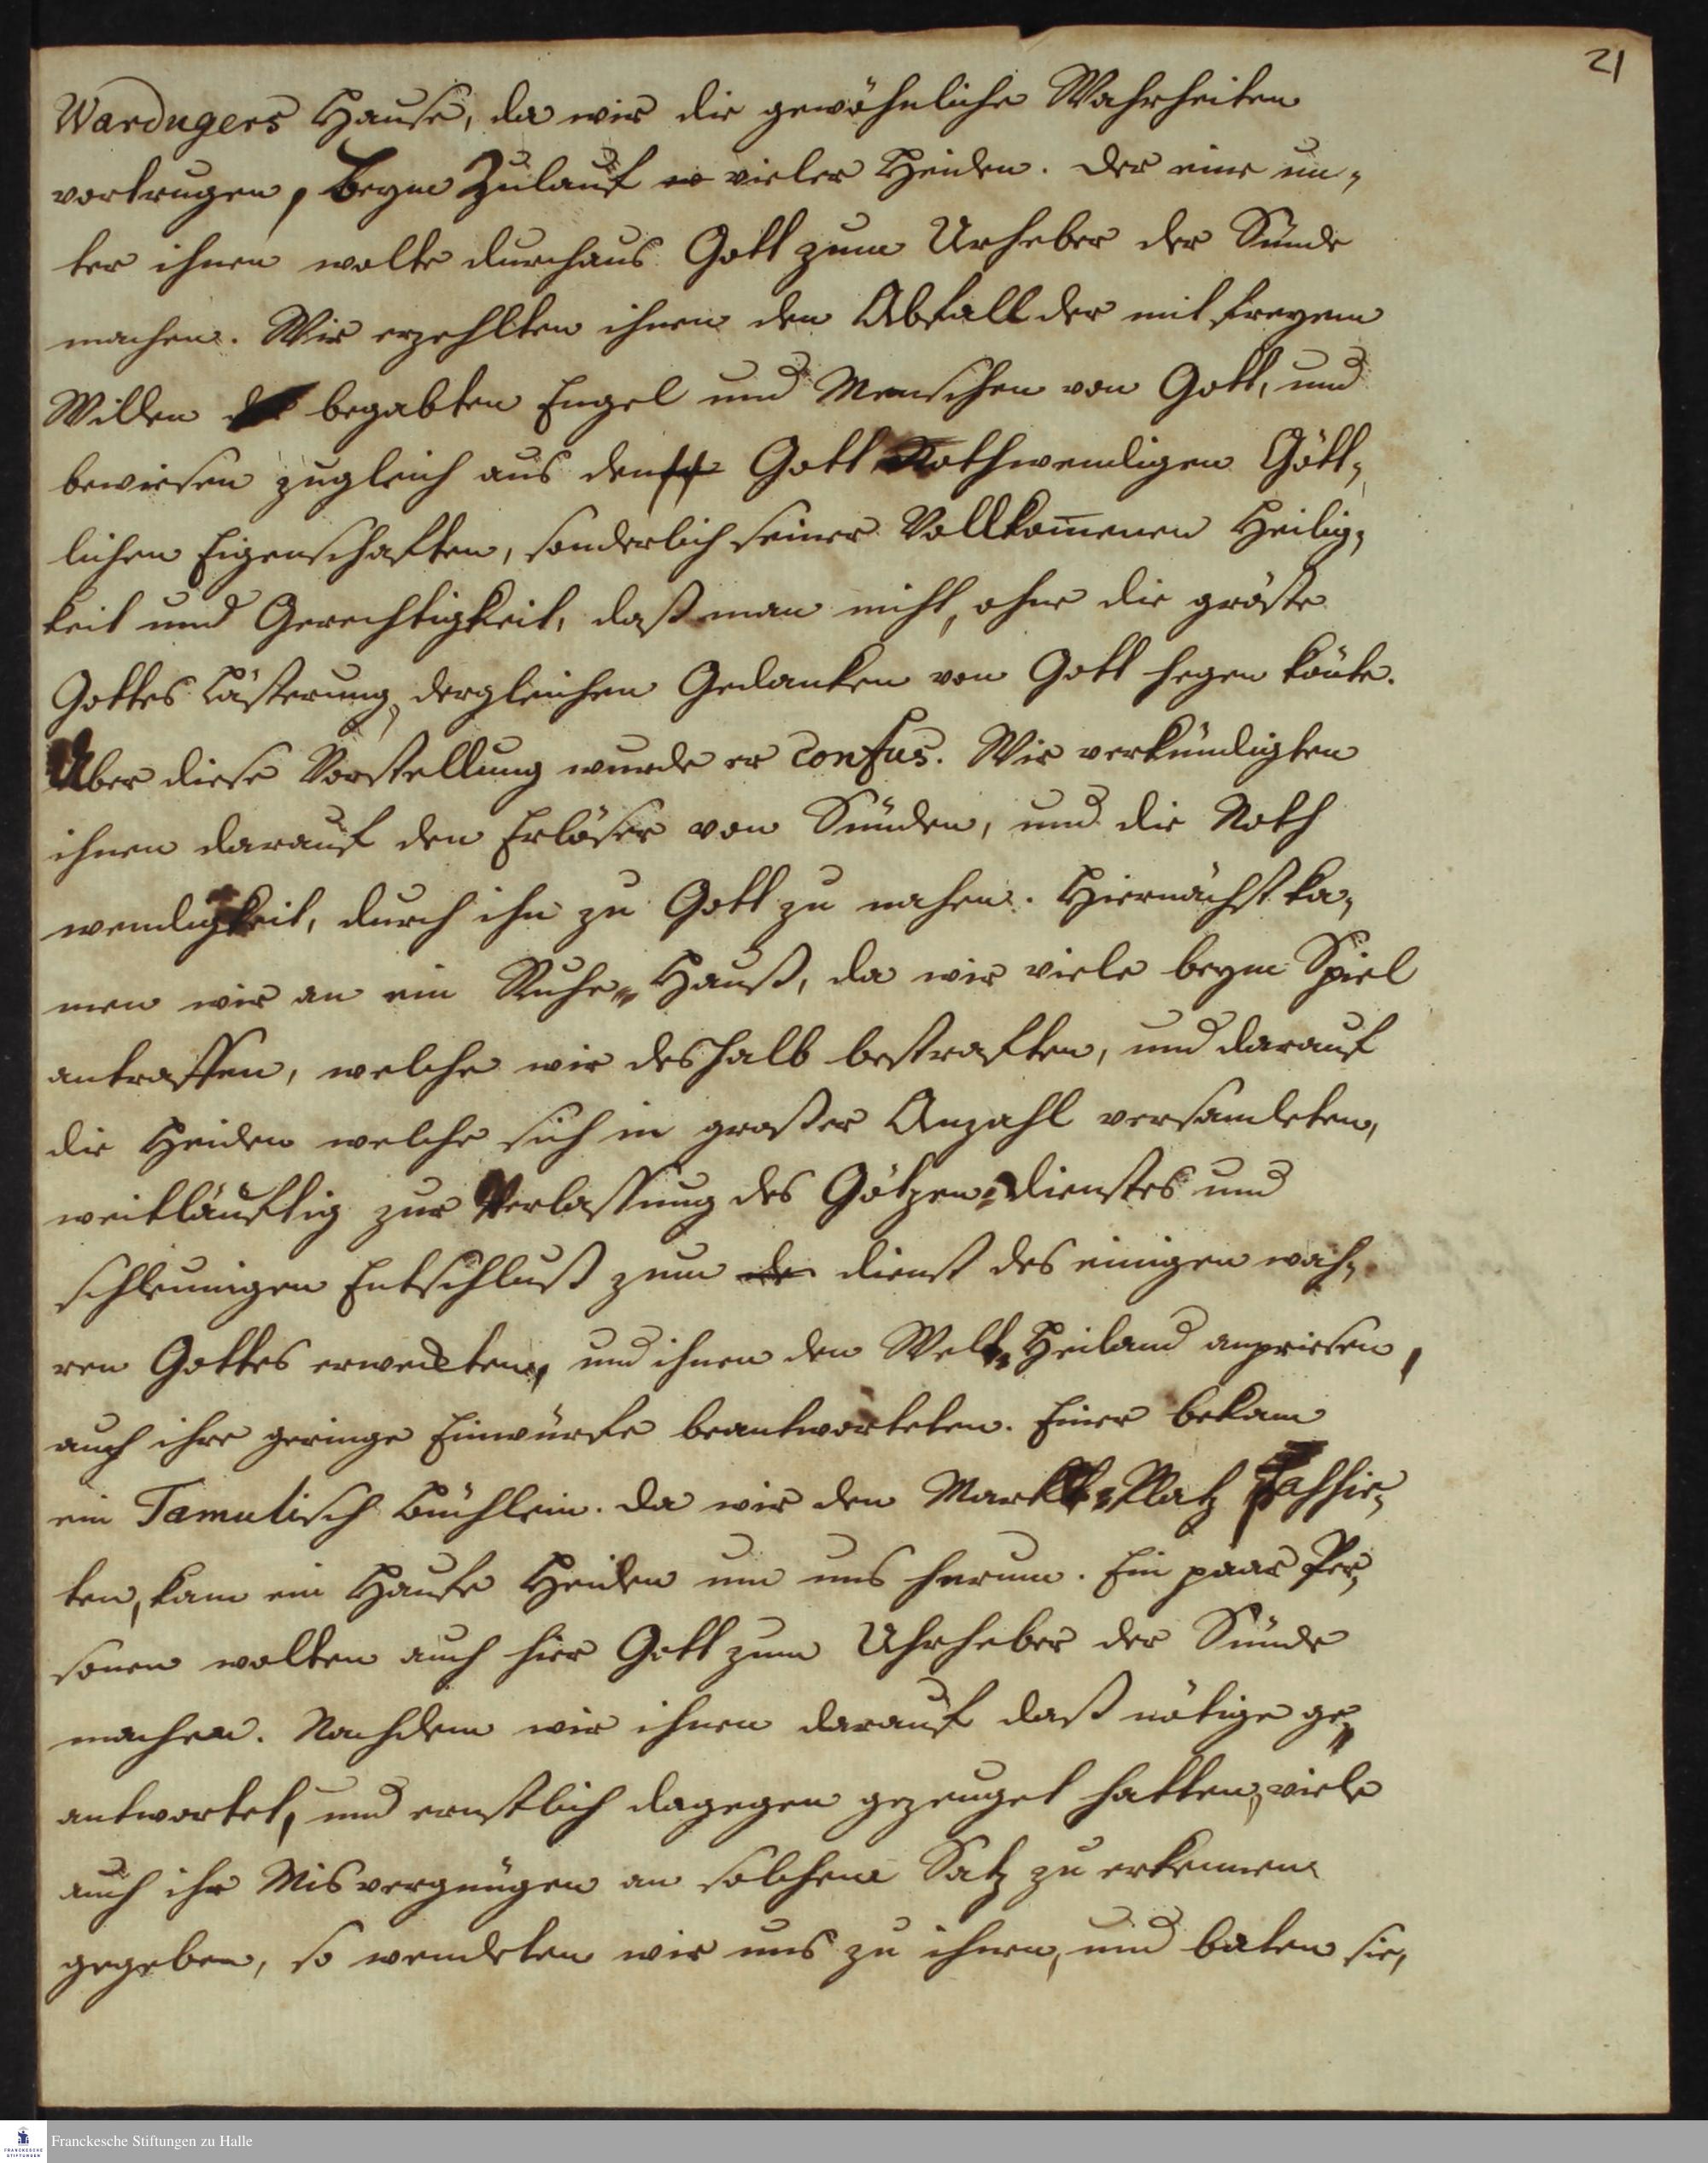 21
Wardugers Hause, da wir die gewöhnliche Wahrheiten
vortrugen, beym Zulauf vieler Heiden. Der eine un-
ter ihnen wolte durchaus Gott zum Urheber der Sünde
machen. Wir erzehlten ihnen den Abfall der mit freyem
Willen begabten Engel und Menschen von Gott, und
bewiesen zugleich aus den Gott Nothwendigen Gött-
lichen Eigenschaften, sonderlich seiner Vollkom̄enen Heilig-
keit und Gerechtigkeit, daß man nicht, ohne die gröste
Gottes Lästerung, dergleichen Gedanken von Gott hegen köñte.
Über diese Vorstellung wurde er confus. Wir verkündigten
ihnen darauf den Erlöser von Sünden, und die Noth
wendigkeit, durch ihn zu Gott zu nahen. Hiernächst ka-
men wir an ein Ruhe-Hauß, da wir viele beym Spiel
antraffen, welche wir deshalb bestraften, und darauf
die Heiden welche sich in großer Anzahl versamleten,
weitläuftig zur Verlassung des Götzen-dienstes und
schleunigen Entschluß zum dienst des einigen wah-
ren Gottes erweckten, und ihnen den Welt-Heiland anpriesen,
auch ihre geringe Einwürfe beantworteten. Einer bekam
ein Tamulisch Büchlein. Da wir den Markt-Platz passir-
ten, kam ein Haufe Heiden um uns herum. Ein paar Per-
sonen wolten auch hier Gott zum Uhrheber der Sünde
machen. Nachdem wir ihnen darauf daß nötige ge-
antwortet, und ernstlich dagegen gezeuget hatten, viele
auch ihr Misvergnügen an solchem Satz zu erkennen
gegeben, so wendeten wir uns zu ihnen, und baten sie,
Franckesche Stiftungen zu Halle